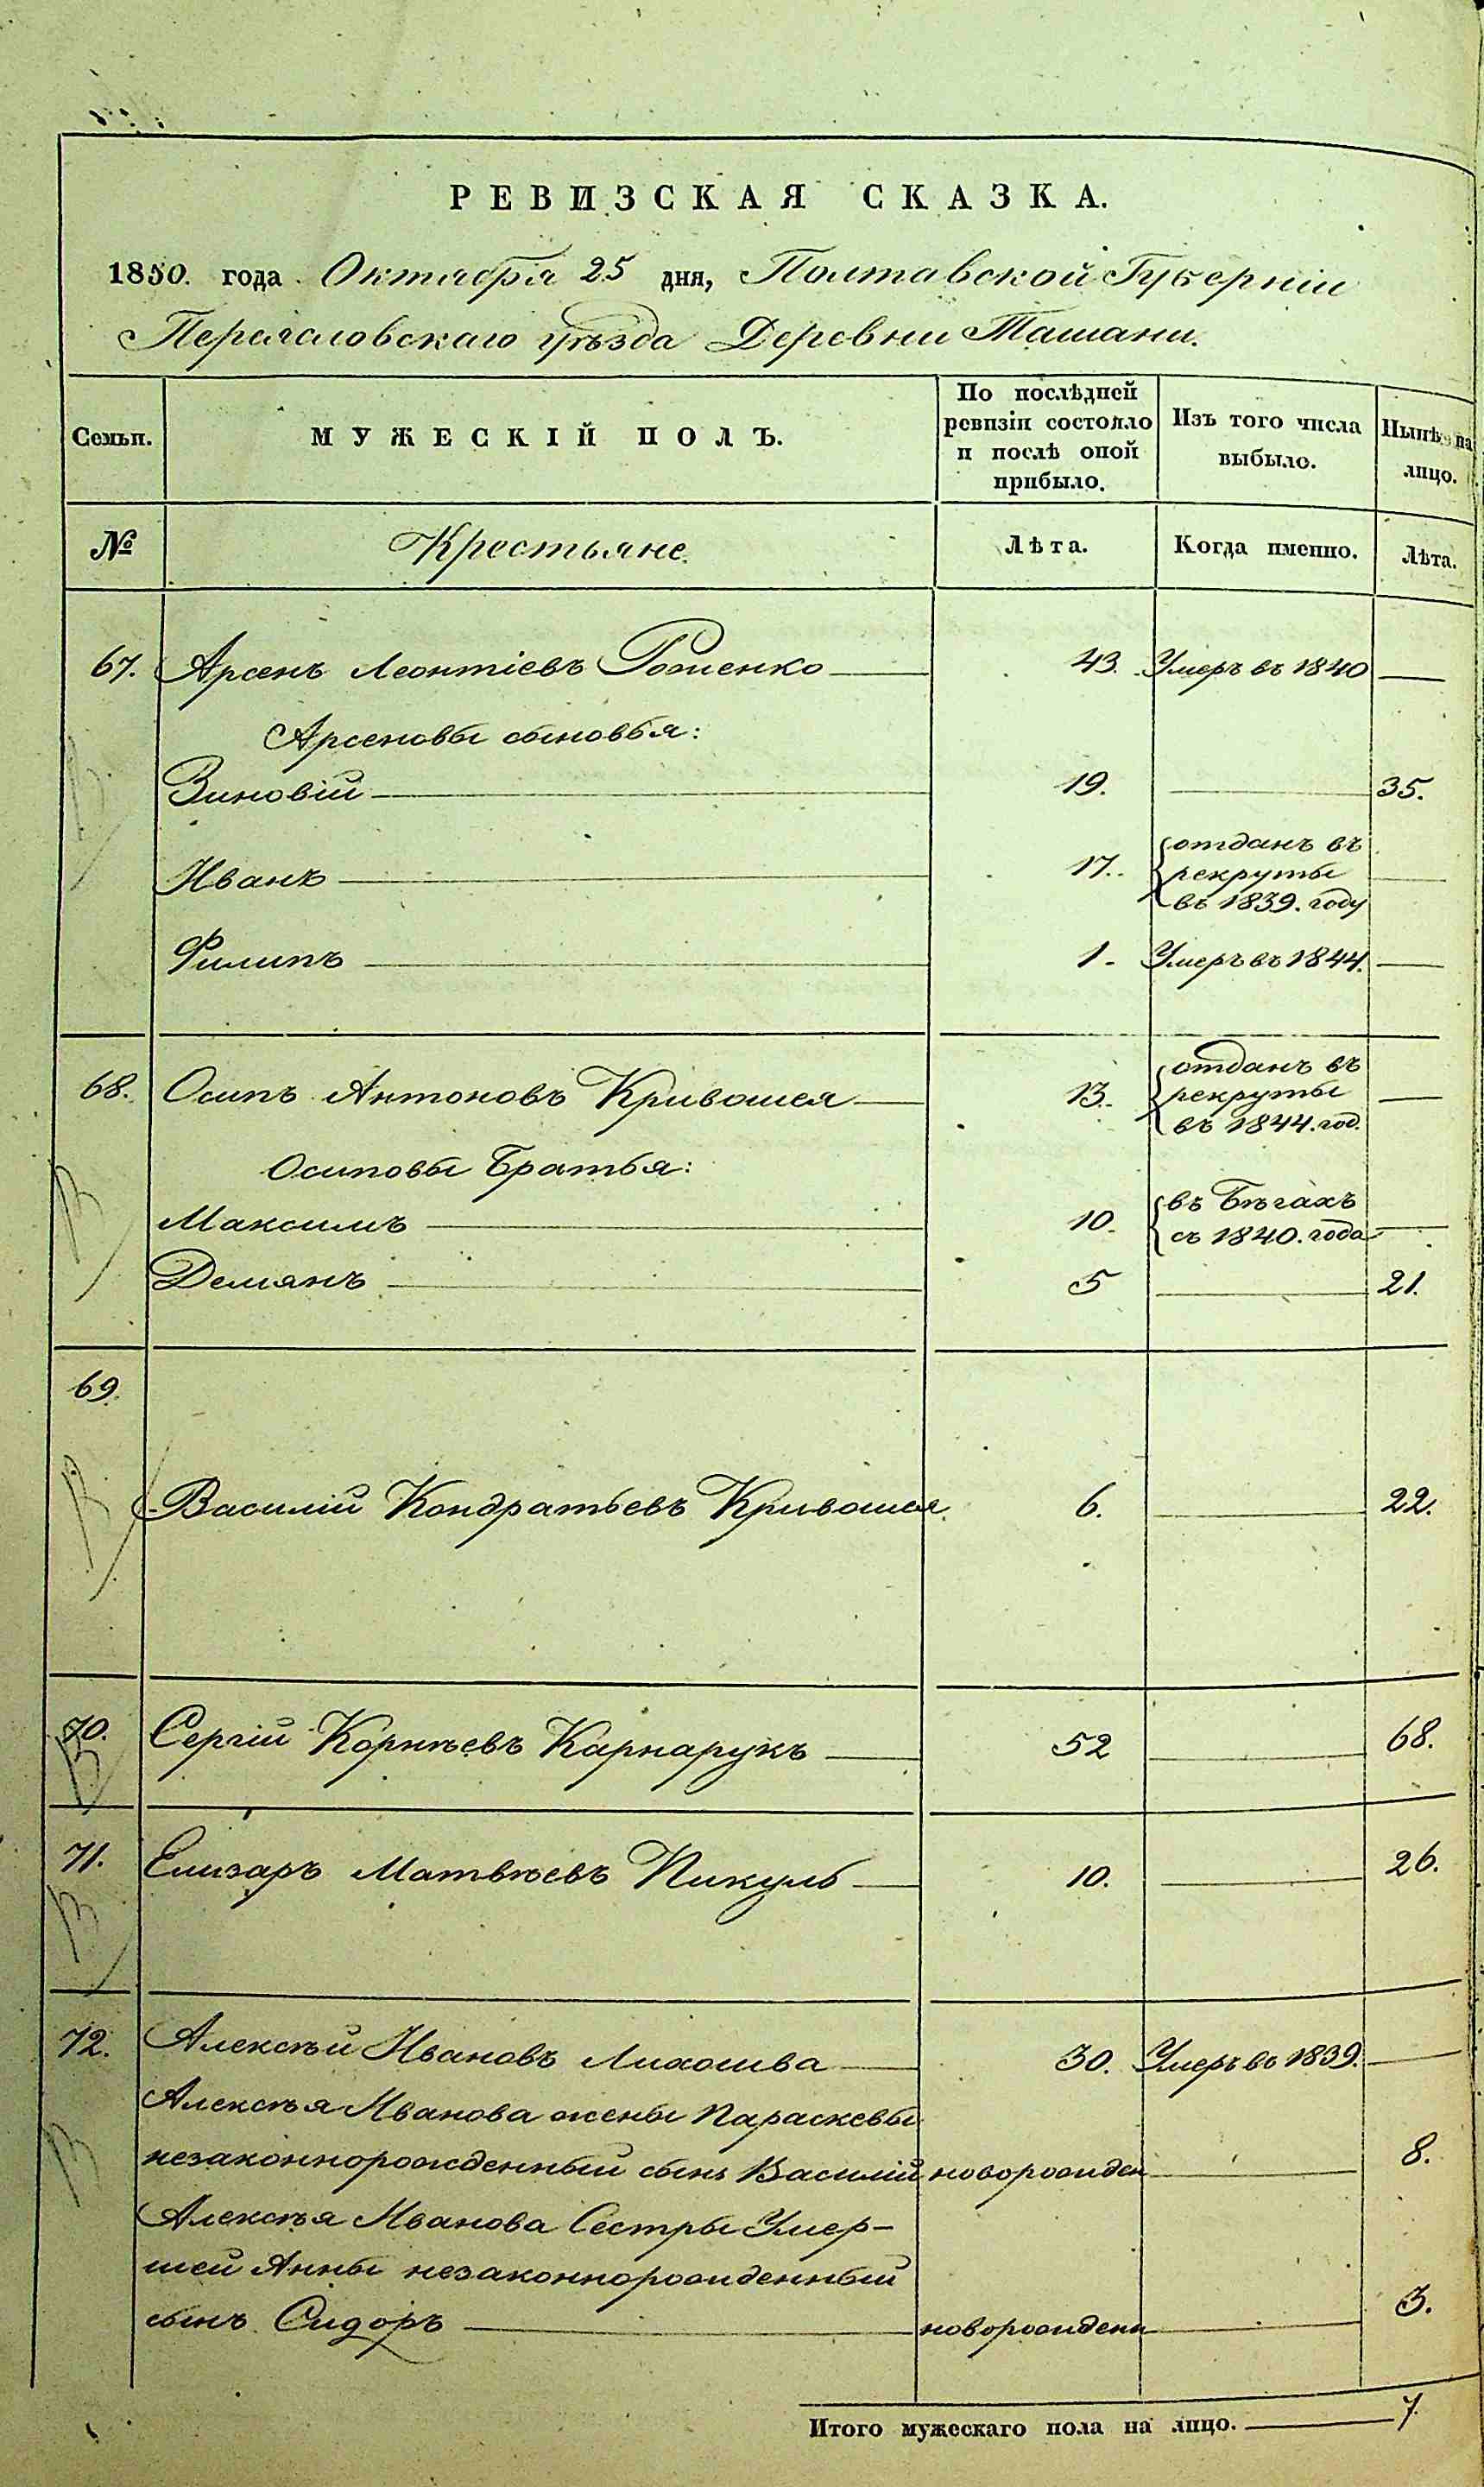 РЕВИЗСКАЯ СКАЗКА.
1850. года Октября 25 дня, Полтавской Губерніи
Переяславскаго уѣзда Деревни Ташани.
Семьи.
МУЖЕСКІЙ ПОЛЪ.
По послѣдней ревизіи состояло и послѣ оной прибыло.
Изъ того числа выбыло.
Нынѣ на лицо.
№
Крестьяне.
Лѣта.
Когда именно.
Лѣта.
67. Арсенъ Леонтіевъ 43. Умеръ въ 1840
Арсеновы сыновья:
Зиновій 19. 35.
Иванъ 17. отданъ въ
рекруты
въ 1839. году
Филипъ 1 - Умеръ въ 1844.
68. Осипъ Антоновъ Кривошея 13. отданъ въ
рекруты
въ 1844. год.
Осиповы братья:
Максимъ 10. въ бѣгахъ
съ 1840. года
Демянъ 5 21.
69.
Василій Кондратьевъ Кривошея. 6. 22.
70. Сергій Корнѣевъ Карнарукъ 52 68.
71. Елизаръ Матвѣевъ Пикуль 10. 26.
72. Алексѣй Ивановъ Лихошва 30. Умеръ въ 1839.
Алексѣя Иванова жены Параскевы
незаконнорожденный сынъ Василій новорожден 8.
Алексѣя Иванова Сестры Умер-
шей Анны незаконнорожденный
сынъ Сидоръ новорожден 3.
Итого мужескаго пола на лицо. 7.